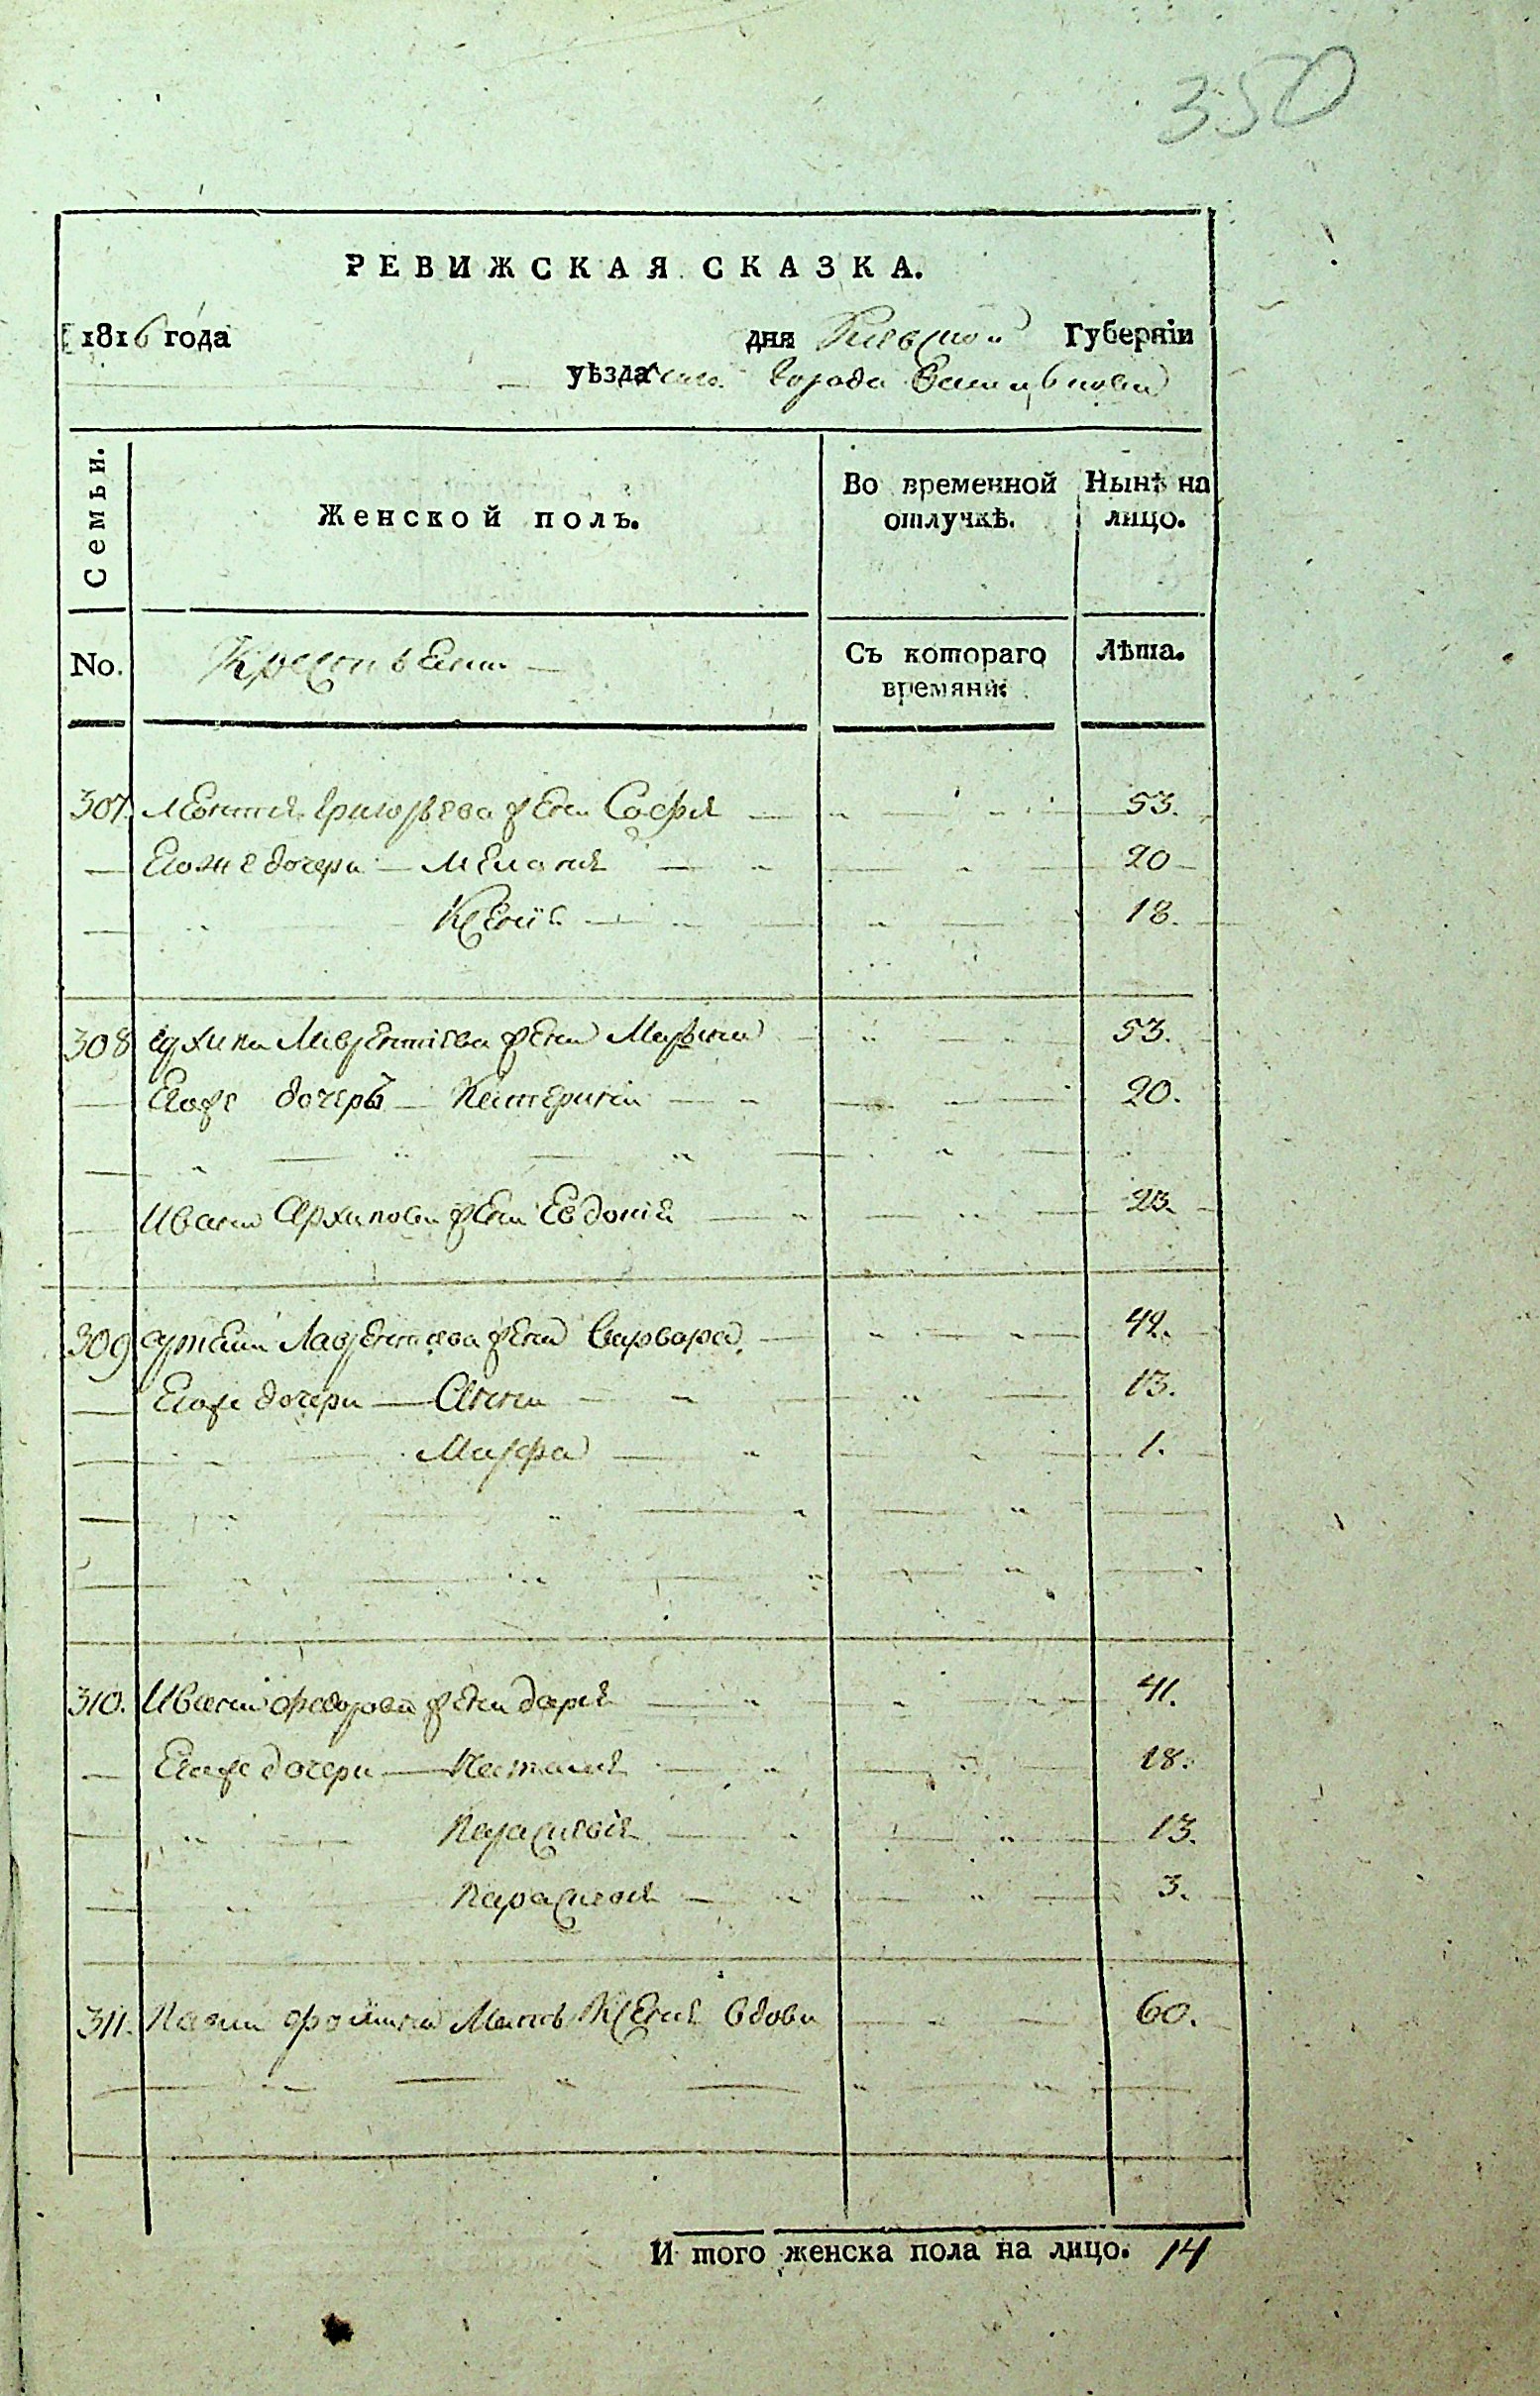 350
РЕВИЖСКАЯ СКАЗКА.
1816 года дня Киевской Губернїи
уѣзда города Василькова
Семьи. Женской полъ. Во временной отлучкѣ. Нынѣ на лицо.
No. Крестьяне Съ котораго времяни Лѣта.
307. Григорьева жена София 53.
Егоже дочери Мелания 20
Ксения 18.
308 Архипа Лаврентиева жена Марина 53.
Егоже дочерь Катерина 20.
Ивана Архипова жена Евдокия 23.
309 Артема Лаврентиева жена Варвара 42.
Егоже дочери Анна 13.
Марфа 1.
310. Ивана Федорова жена Дария 41.
Егоже дочери Наталия 18.
Параскевия 13.
Параскевия 3.
311. Мать Ксения вдова 60.
И того женска пола на лицо. 14